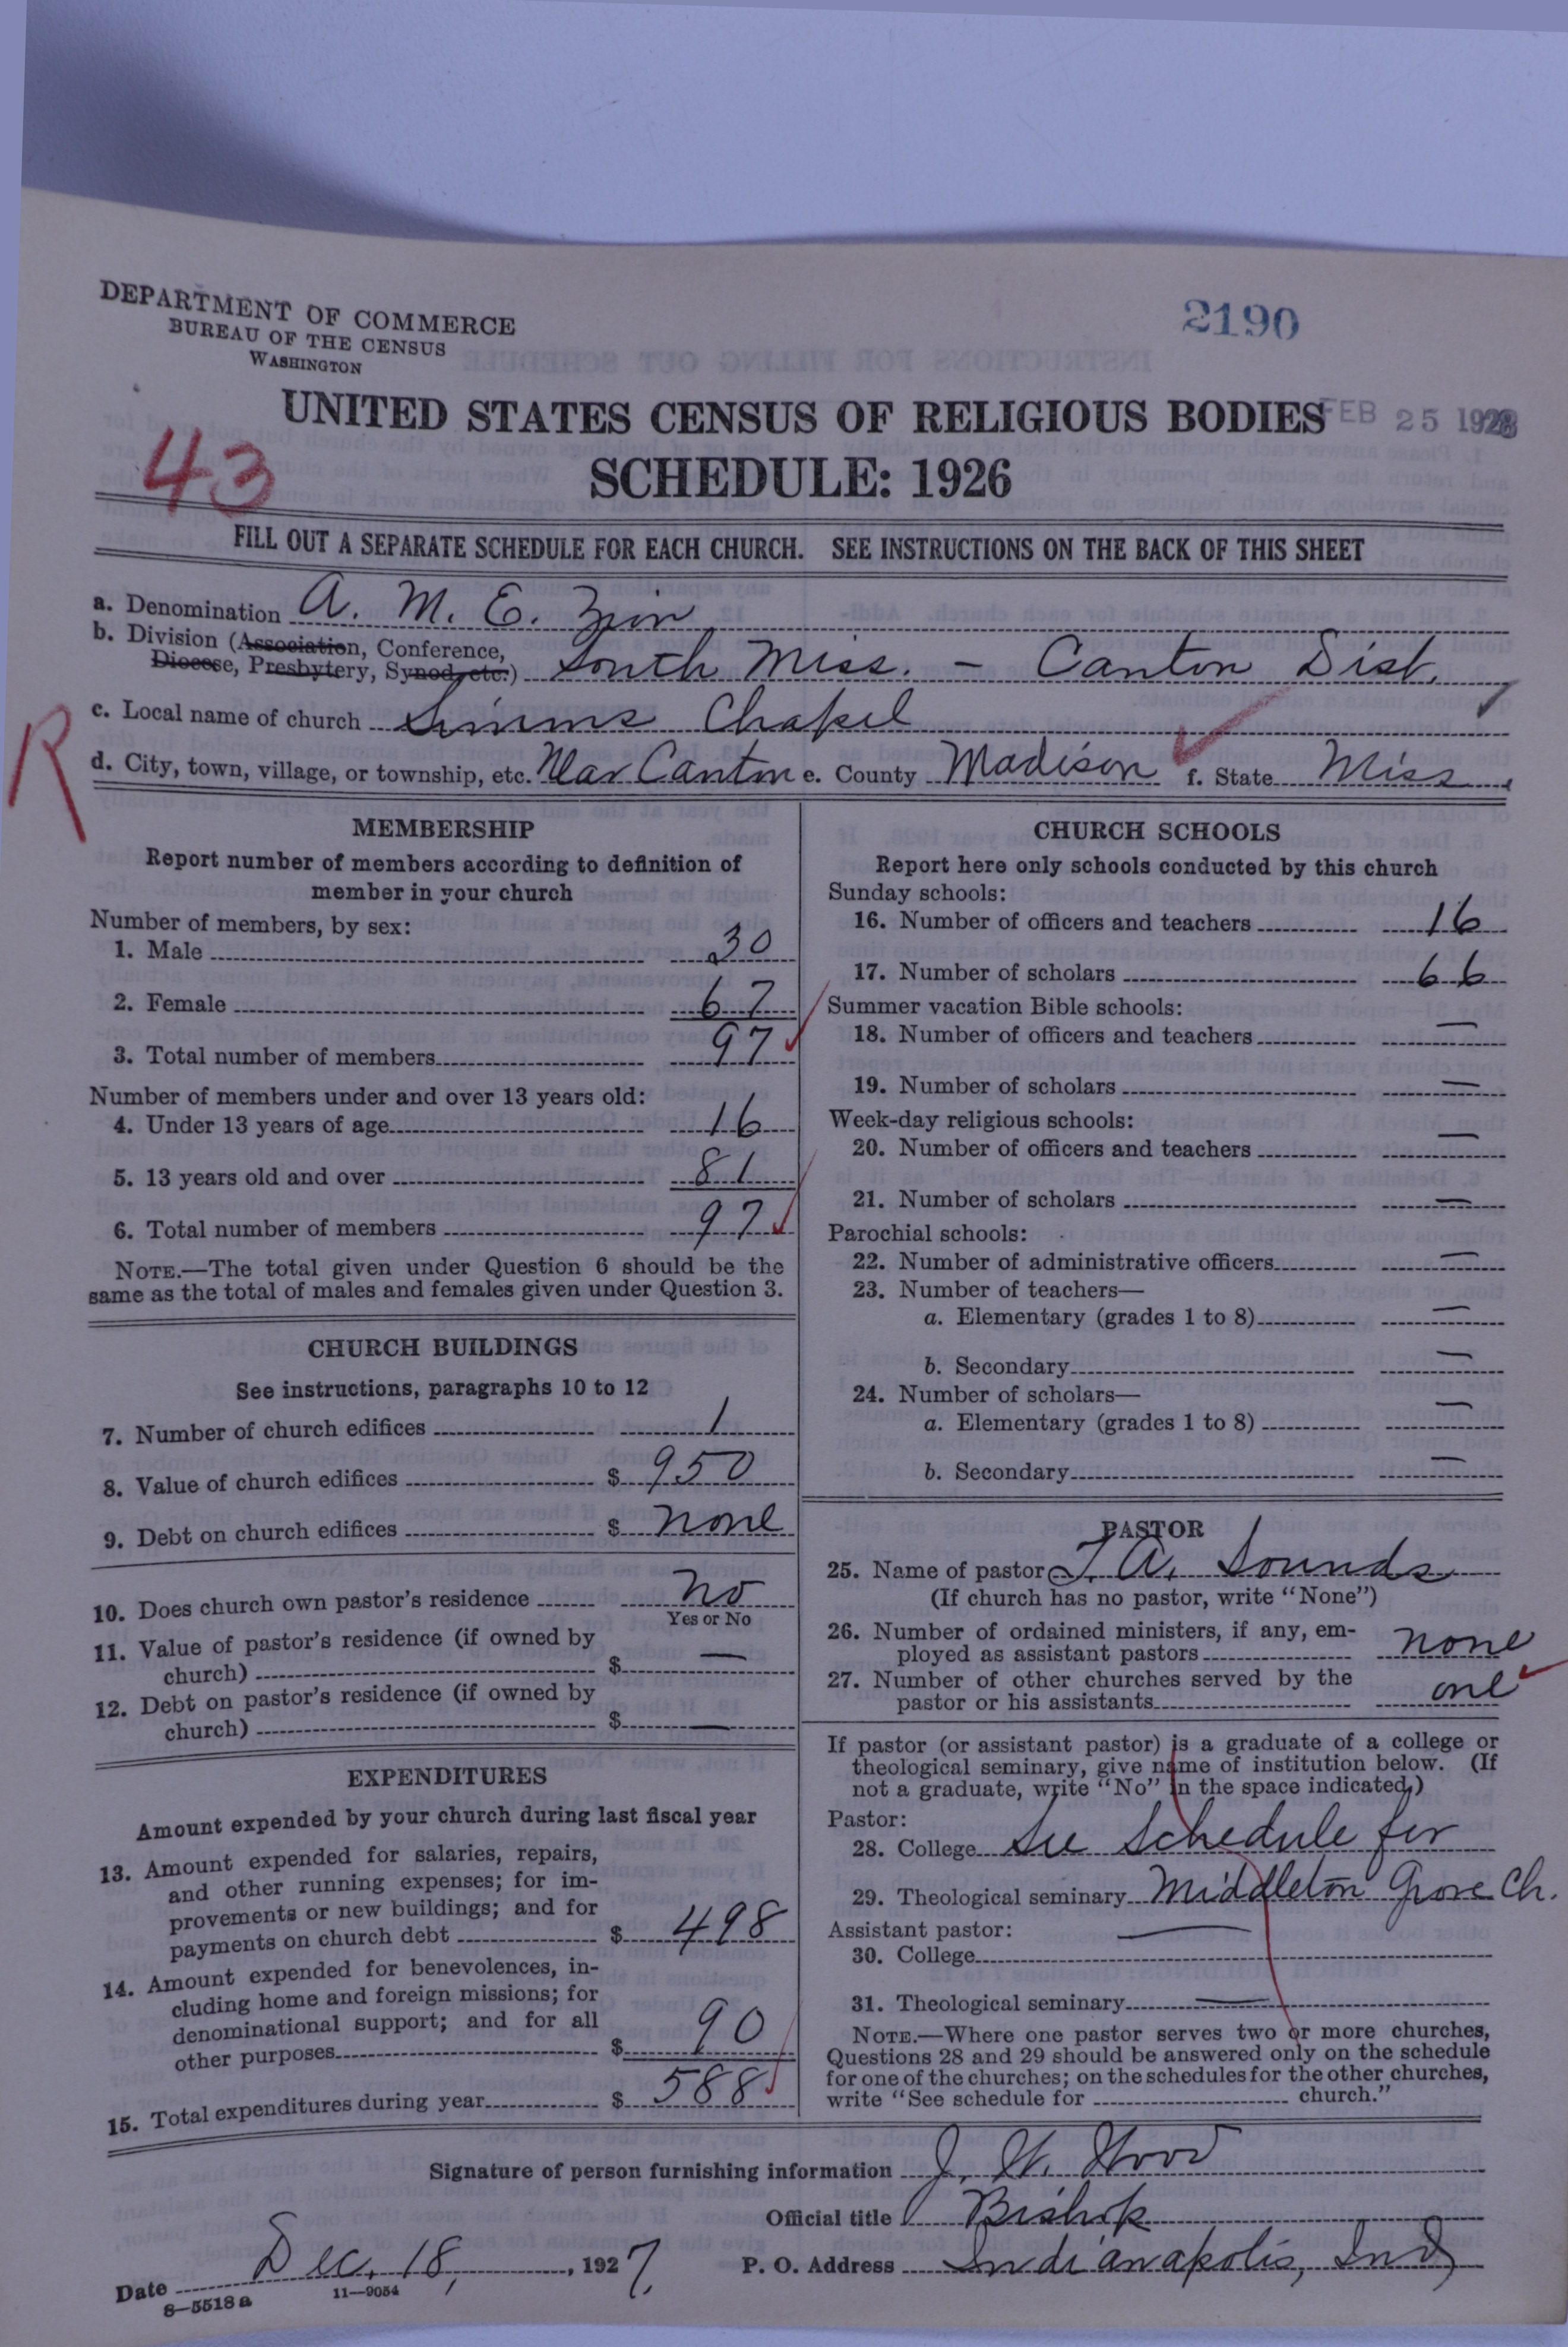 DEPARTMENT OF COMMERCE
BUREAU OF THE CENSUS
WASHINGTON
2190
UNITED STATES CENSUS OF RELIGIOUS BODIES
FEB 25 1928
SCHEDULE: 1926
43
FILL OUT A SEPARATE SCHEDULE FOR EACH CHURCH. SEE INSTRUCTIONS ON THE BACK OF THIS SHEET
a. Denomination A. M. E. Zion
b. Division (Association, Conference, Diocese, Presbytery, Synod, etc.) South Miss. – Canton Dist.
c. Local name of church Simms Chapel
R
d. City, town, village, or township, etc. Near Canton e. County Madison f. State Miss.
MEMBERSHIP
Report number of members according to definition of
member in your church
Number of members, by sex:
1. Male 30
2. Female 67
3. Total number of members 97
Number of members under and over 13 years old:
4. Under 13 years of age 16
5. 13 years old and over 81
6. Total number of members 97
NOTE.—The total given under Question 6 should be the
same as the total of males and females given under Question 3.
CHURCH BUILDINGS
See instructions, paragraphs 10 to 12
7. Number of church edifices 1
8. Value of church edifices $ 950
9. Debt on church edifices $ none
10. Does church own pastor's residence no
Yes or No
11. Value of pastor's residence (if owned by
church) $ —
12. Debt on pastor's residence (if owned by
church) $ —
EXPENDITURES
Amount expended by your church during last fiscal year
13. Amount expended for salaries, repairs,
and other running expenses; for im-
provements or new buildings; and for
payments on church debt $ 498
14. Amount expended for benevolences, in-
cluding home and foreign missions; for
denominational support; and for all
other purposes $ 90
15. Total expenditures during year $ 588
CHURCH SCHOOLS
Report here only schools conducted by this church
Sunday schools:
16. Number of officers and teachers 16
17. Number of scholars 66
Summer vacation Bible schools:
18. Number of officers and teachers —
19. Number of scholars —
Week-day religious schools:
20. Number of officers and teachers —
21. Number of scholars —
Parochial schools:
22. Number of administrative officers —
23. Number of teachers—
a. Elementary (grades 1 to 8) —
b. Secondary —
24. Number of scholars—
a. Elementary (grades 1 to 8) —
b. Secondary —
PASTOR
25. Name of pastor J. A. Sounds
(If church has no pastor, write "None")
26. Number of ordained ministers, if any, em-
ployed as assistant pastors none
27. Number of other churches served by the
pastor or his assistants one
If pastor (or assistant pastor) is a graduate of a college or
theological seminary, give name of institution below. (If
not a graduate, write "No" in the space indicated.)
Pastor:
28. College See Schedule for
29. Theological seminary Middleton Grove Ch.
Assistant pastor:
30. College —
31. Theological seminary —
NOTE.—Where one pastor serves two or more churches,
Questions 28 and 29 should be answered only on the schedule
for one of the churches; on the schedules for the other churches,
write "See schedule for ______ church."
Signature of person furnishing information J. W. Wood
Official title Bishop
Date Dec. 18, 1927. P. O. Address Indianapolis, Ind
8—5518 a 11—9054